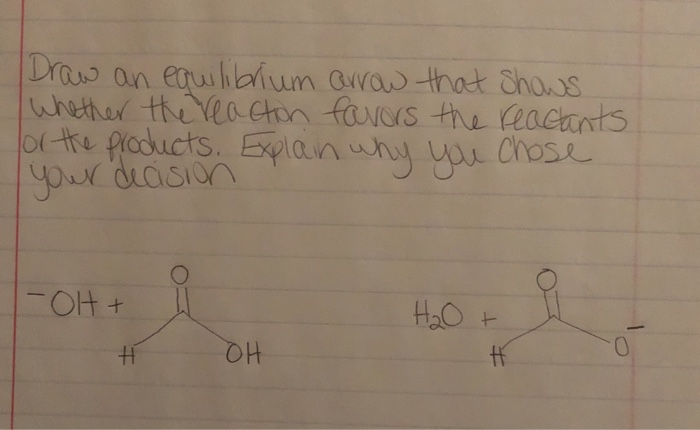 Draw an equilibrium arrow that shows
whether the reaction favors the reactants
or the products. Explain why you chose
your decision
O O
-OH + H2O +
H OH H O-